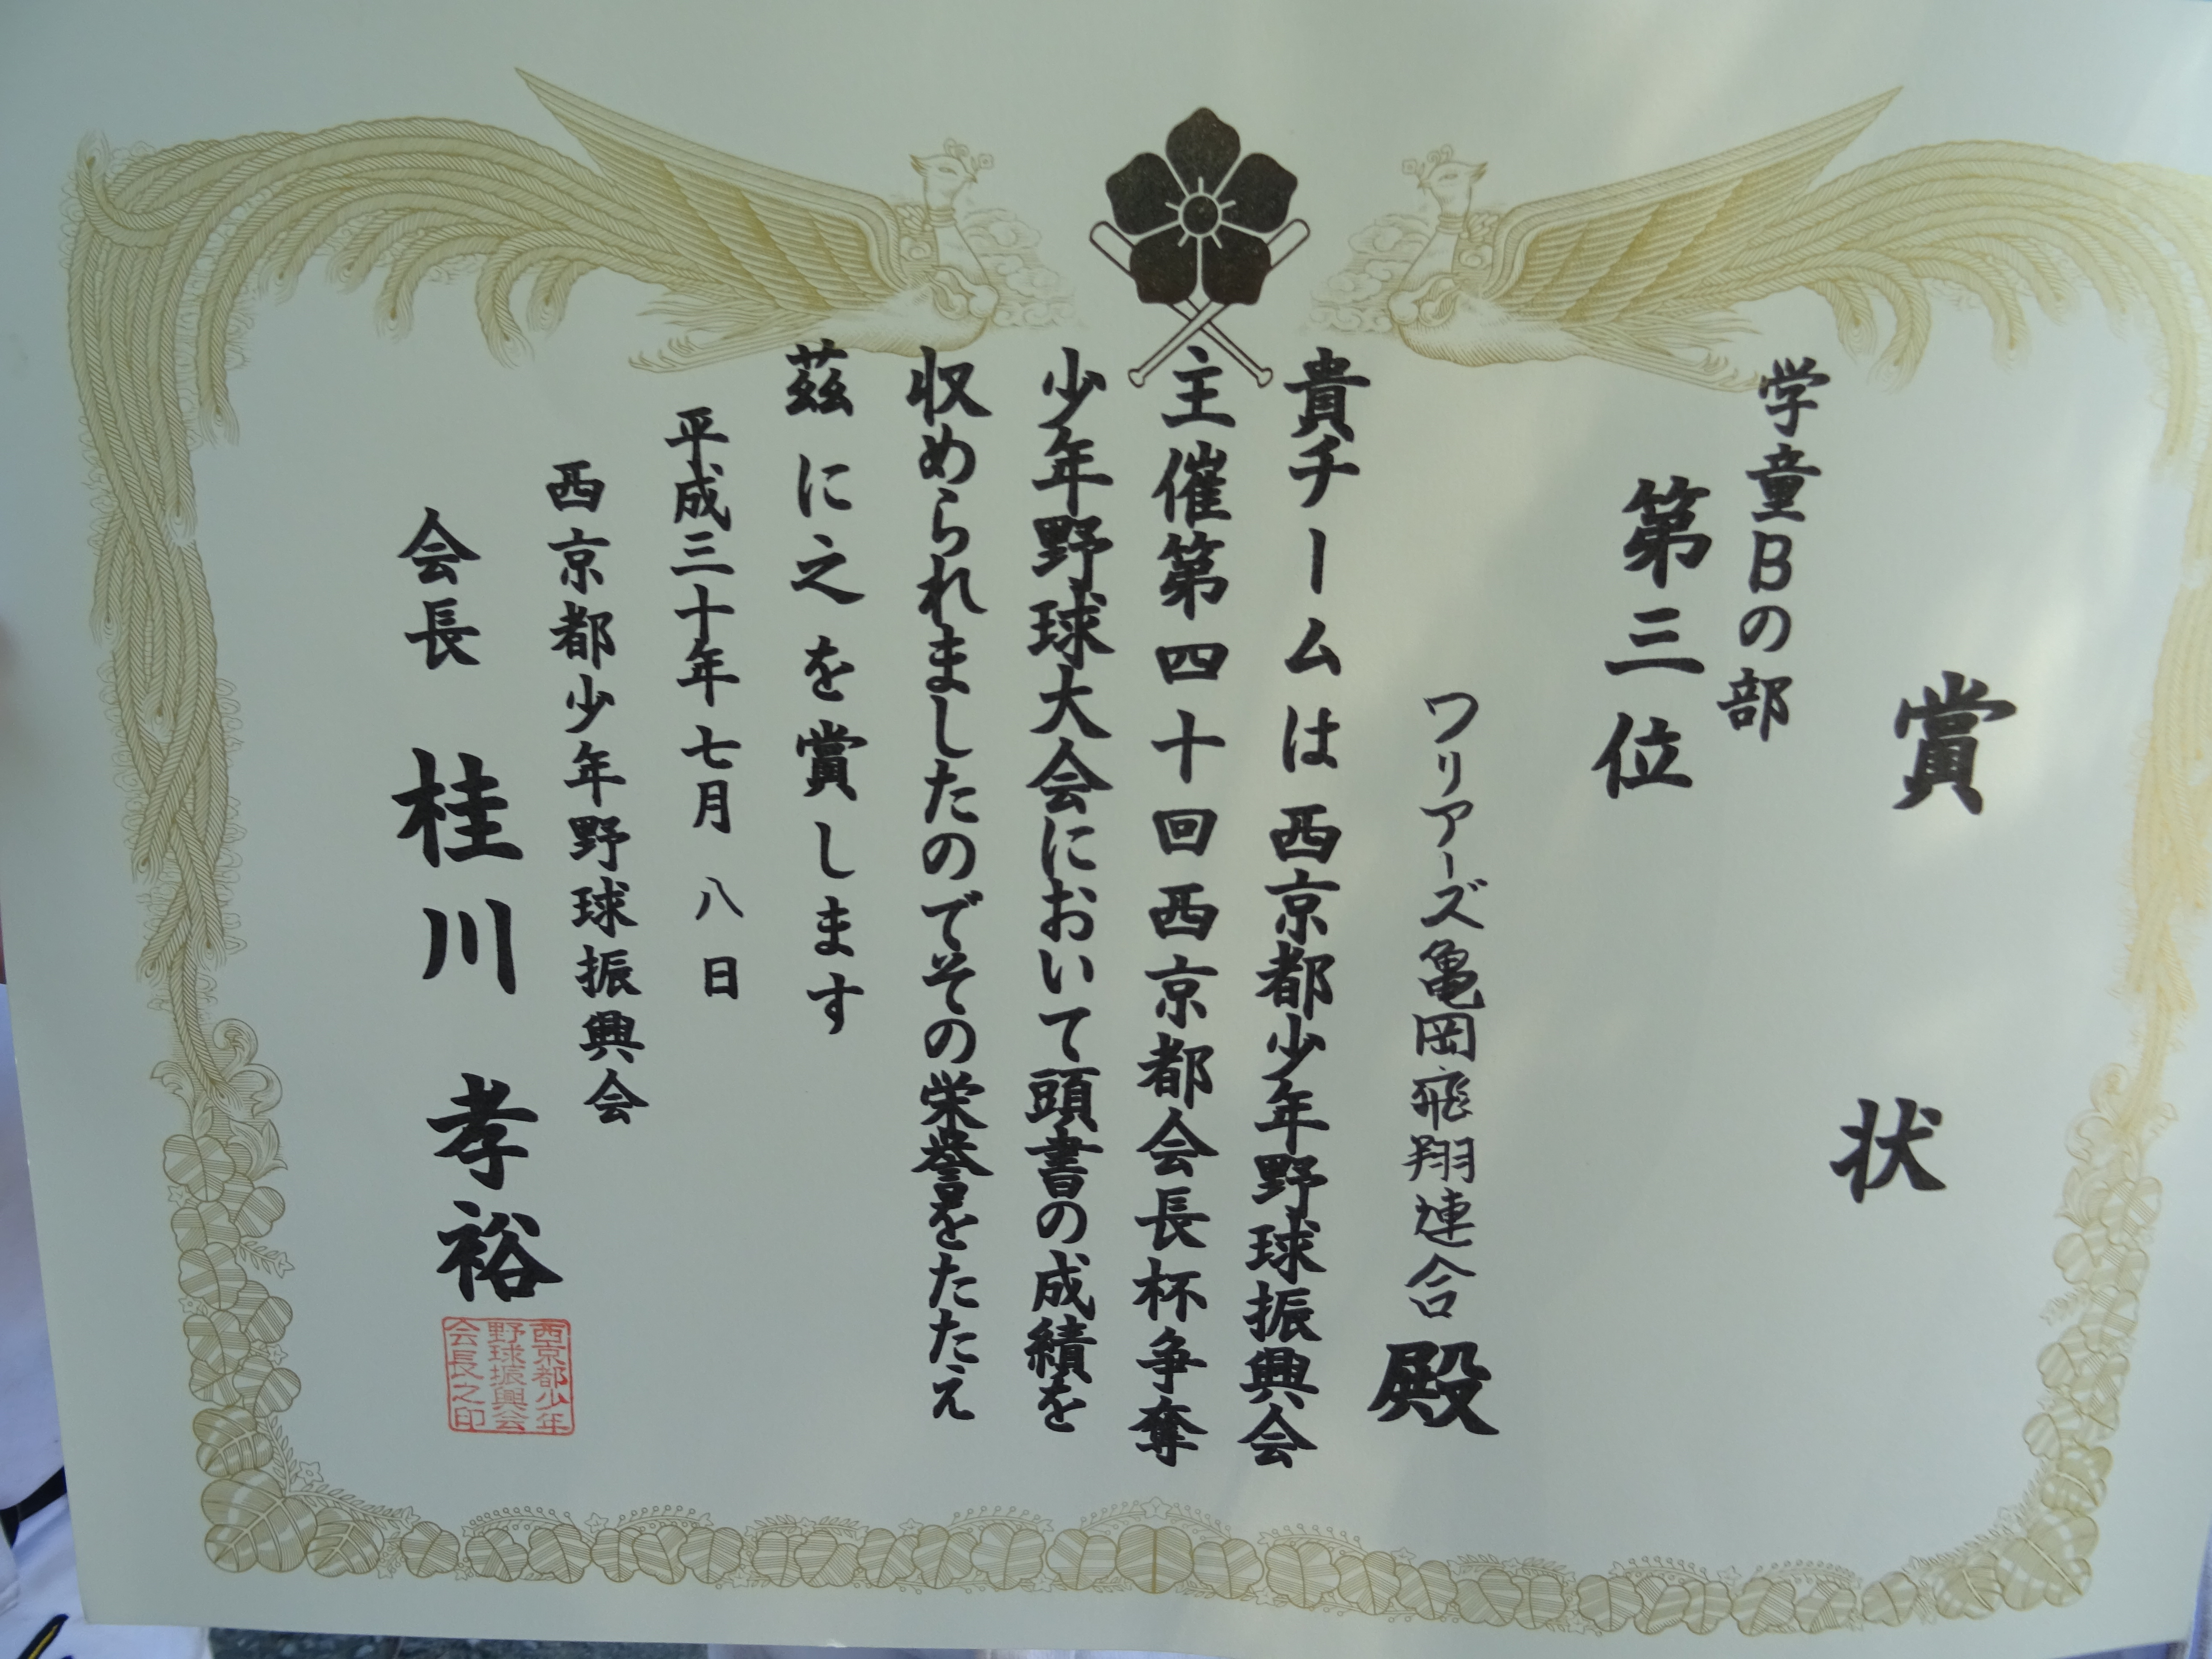 賞状
学童Bの部
第三位
ワリアーズ亀岡飛翔連合殿
貴チームは西京都少年野球振興会
主催第四十回西京都会長杯争奪
少年野球大会において頭書の成績を
収められましたのでその栄誉をたたえ
茲に之を賞します
平成三十年七月八日
西京都少年野球振興会
会長 桂川 孝裕
西京都少年
野球振興会
会長之印